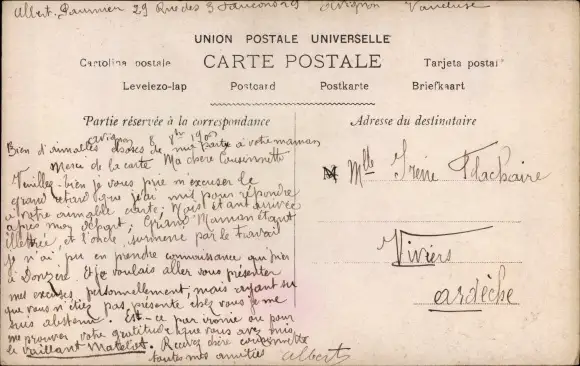 Albert 29 Rue des 3 Faucons 29 Avignon Vaucluse
UNION POSTALE UNIVERSELLE
Cartolina postale CARTE POSTALE Tarjeta postal
Levelezo-lap Postcard Postkarte Briefkaart
Partie réservée à la correspondance
Adresse du destinataire
Avignon 8
Bien d'aimables choses de ma part à votre maman
Merci de la carte Ma chère Cousinette
Veuillez-bien je vous prie m'excuser le
grand retard que j'ai mis pour répondre
à votre aimable carte; Mais étant arrivée
après mon départ; Grand'Maman étant
illettrée, et l'oncle, surmené par le travail
je n'ai pu en prendre connaissance qu'hier
à Donzère. Et je voulais aller vous présenter
mes excuses, personnellement, mais ayant su
que vous n'étiez pas présente chez vous je me
suis abstenu. Est-ce par ironie ou pour
me prouver votre gratitude que vous avez mis
le vaillant Matelot. Recevez chère cousinette
toutes mes amitiés Albert
Mlle Irène Flachaire
Viviers
ardèche